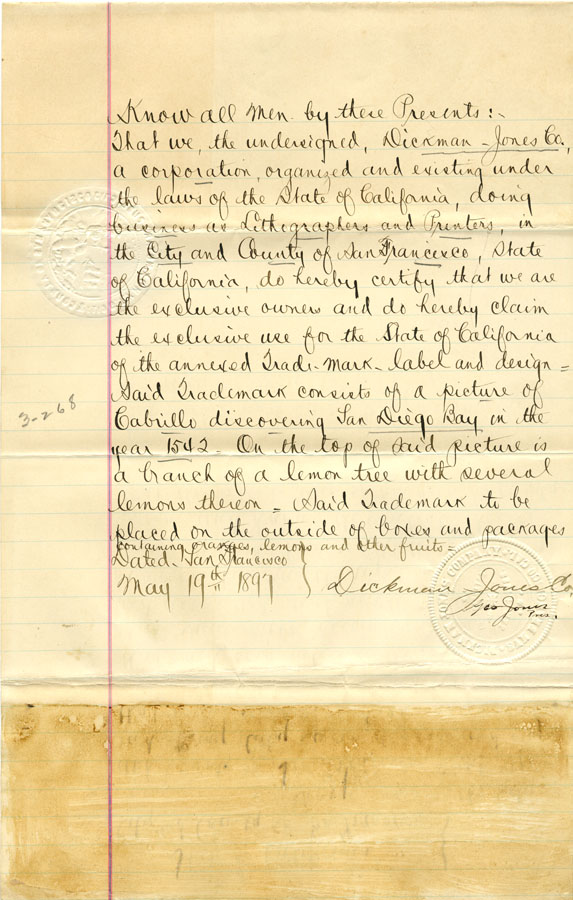 Know all Men by these Presents:-
That we, the undersigned, Dickman-Jones Co.,
a corporation, organized and existing under
the laws of the State of California, doing
business as Lithographers and Printers, in
the City and County of San Francisco, State
of California, do hereby certify that we are
the exclusive owners and do hereby claim
the exclusive use for the State of California
of the annexed Trade-Mark-label and design=
Said Trademark consists of a picture of
3-268
Cabrillo discovering San Diego Bay in the
year 1542- On the top of said picture is
a branch of a lemon tree with several
lemons thereon= Said Trademark to be
placed on the outside of boxes and packages
containing oranges, lemons and other fruits=
Dated San Francisco
May 19th 1897
Dickman Jones Co.
Geo Jones